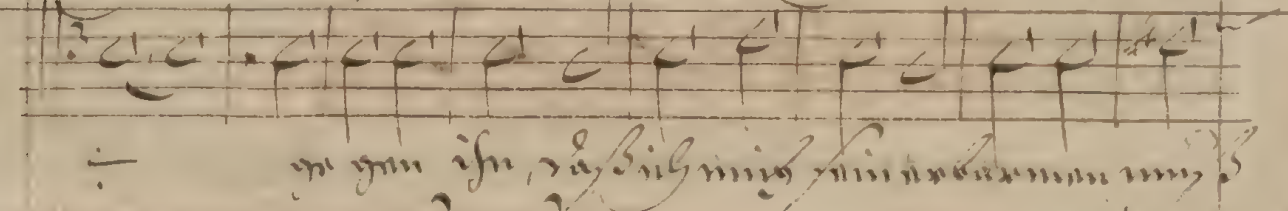 ge gen ihn, daß ich mich sein erbarmen muß